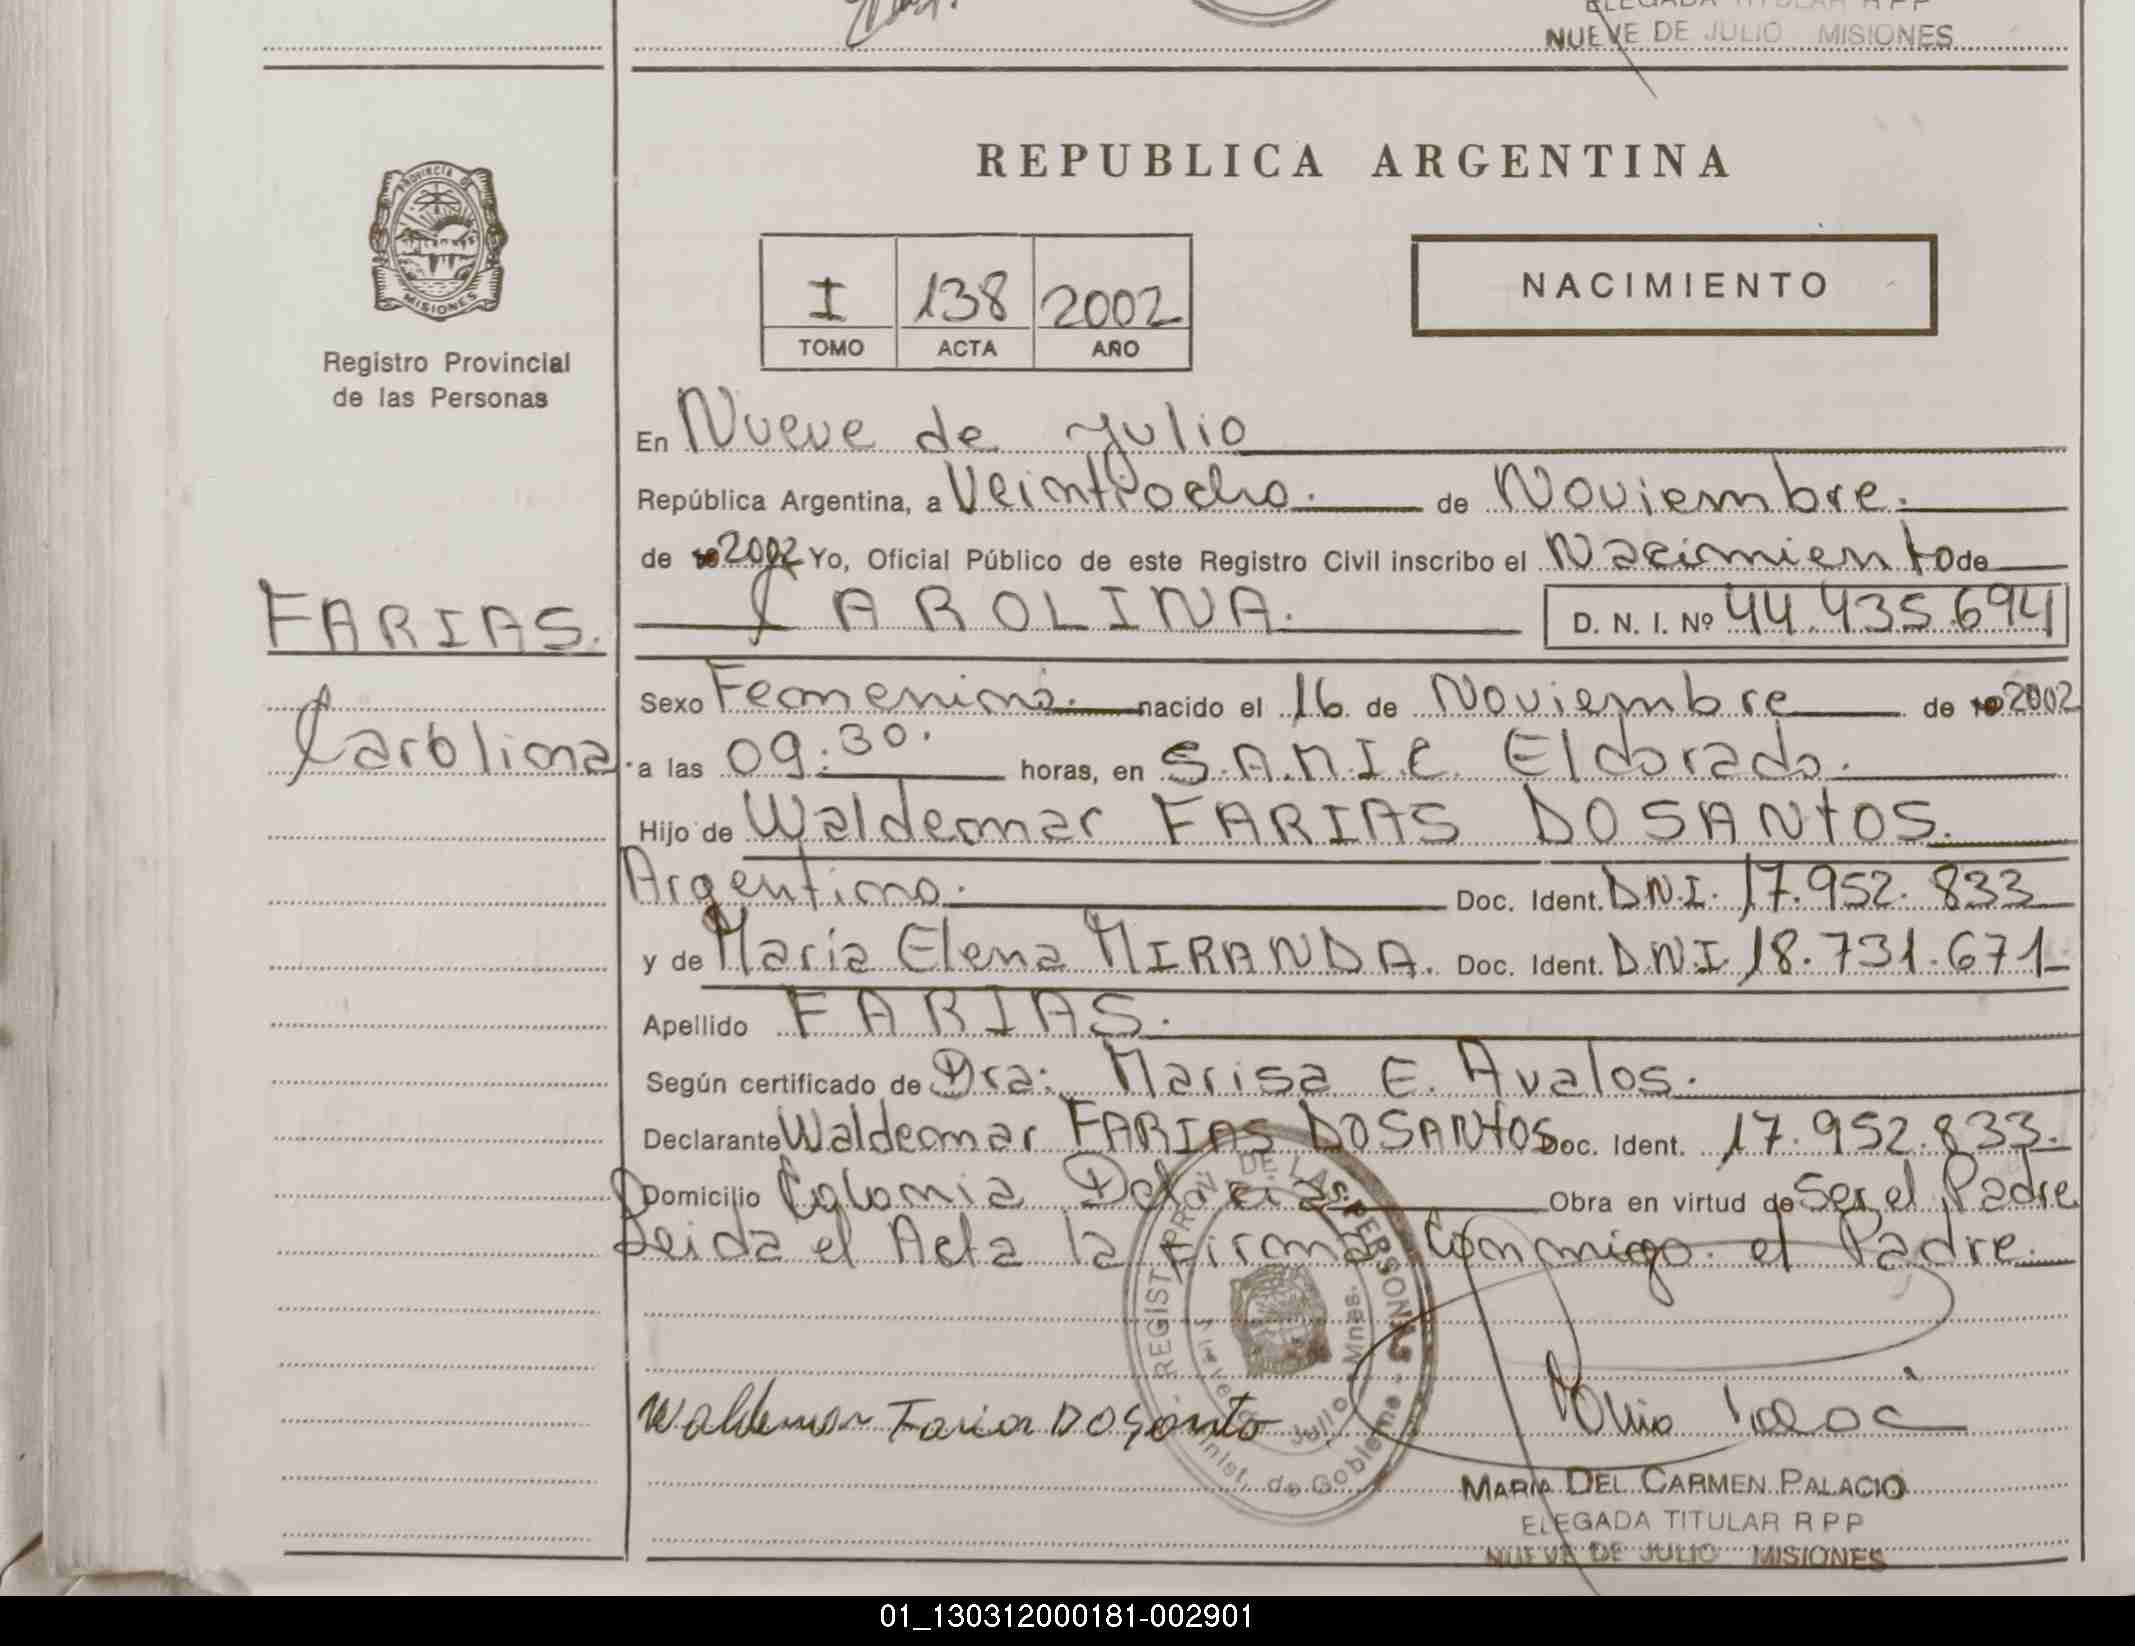 NUEVE DE JULIO MISIONES
PROVINCIA DE
MISIONES
Registro Provincial
de las Personas
FARIAS.
Carolina
REPUBLICA ARGENTINA
I 138 2002
TOMO ACTA AÑO
NACIMIENTO
En Nueve de Julio
República Argentina, a Veintiocho. de Noviembre.
de 19 2002 Yo, Oficial Público de este Registro Civil inscribo el Nacimiento de
CAROLINA. D. N. I. Nº 44.435.694
Sexo Femenino. nacido el 16 de Noviembre de 19 2002
a las 09:30. horas, en S.A.M.I.C. Eldorado.
Hijo de Waldemar FARIAS DOSANtOS.
Argentino. Doc. Ident. D.N.I. 17.952.833
y de Maria Elena MIRANDA. Doc. Ident. D.N.I 18.731.671
Apellido FARIAS.
Según certificado de Dra: Marisa E. Avalos.
Declarante Waldemar FARIAS DOSANtOS Doc. Ident. 17.952.833.
Domicilio Colonia Delicia Obra en virtud de Ser el Padre
Leida el Acta la Firma Conmigo el Padre.
REGIST. PROV. DE LAS PERSONAS
Nueve de Julio Mnes.
Minist. de Gobierno
Waldemar Faria DOSanto
MARIA DEL CARMEN PALACIO
ELEGADA TITULAR R P P
NUEVE DE JULIO MISIONES
01_130312000181-002901